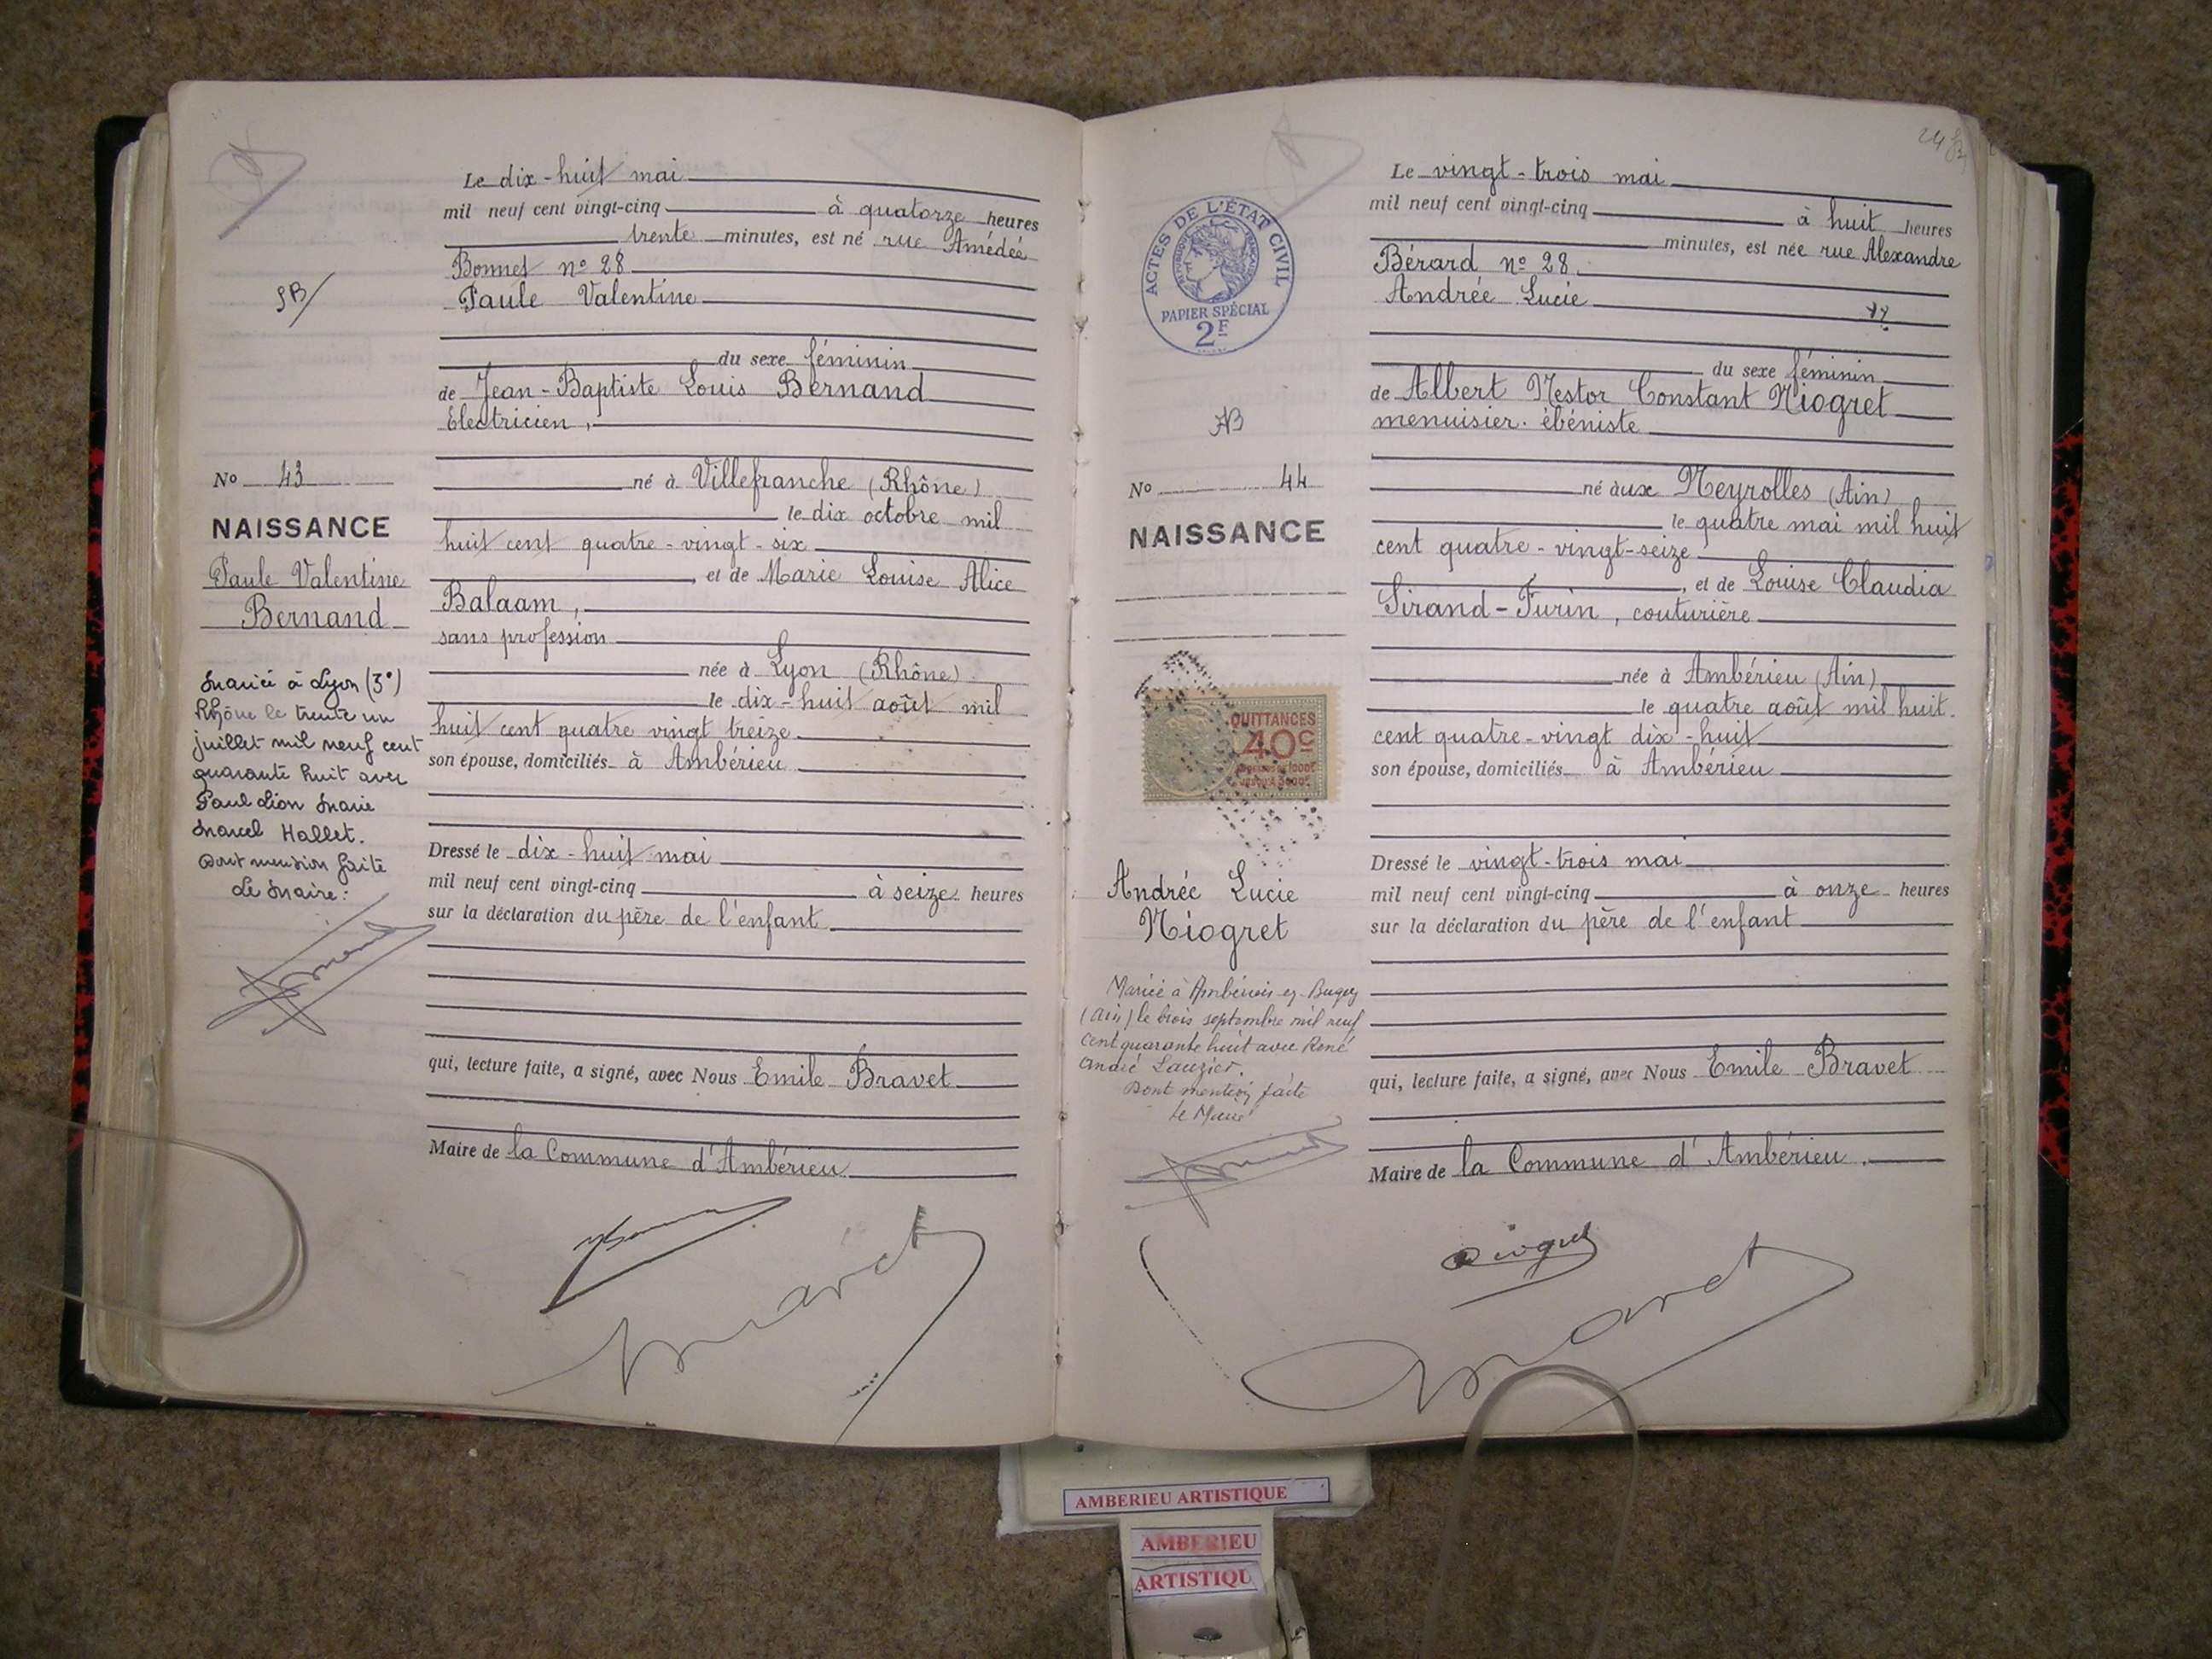 Le dix-huit mai
mil neuf cent vingt-cinq à quatorze heures
trente minutes, est né rue Amédée
Bonnet n° 28
Paule Valentine
du sexe féminin
de Jean-Baptiste Louis Bernand
Electricien,
né à Villefranche (Rhône)
le dix octobre mil
huit cent quatre-vingt-six
, et de Marie Louise Alice
Balaam,
sans profession
née à Lyon (Rhône)
le dix-huit août mil
huit cent quatre vingt treize
son épouse, domiciliés à Ambérieu
Dressé le dix-huit mai
mil neuf cent vingt-cinq à seize heures
sur la déclaration du père de l'enfant
qui, lecture faite, a signé, avec Nous Emile Bravet
Maire de la Commune d'Ambérieu
No 43
NAISSANCE
Paule Valentine
Bernand
Mariée à Lyon (3°)
Rhône le trente un
juillet mil neuf cent
quarante huit avec
Paul Léon Marie
Marcel Hallet.
Dont mention faite
Le Maire:
Le vingt-trois mai
mil neuf cent vingt-cinq à huit heures
minutes, est née rue Alexandre
Bérard n° 28
Andrée Lucie
du sexe féminin
de Albert Nestor Constant Niogret
menuisier-ébéniste
né aux Neyrolles (Ain)
le quatre mai mil huit
cent quatre-vingt-seize
, et de Louise Claudia
Sirand-Furin, couturière
née à Ambérieu (Ain)
le quatre août mil huit
cent quatre-vingt dix-huit
son épouse, domiciliés à Ambérieu
Dressé le vingt-trois mai
mil neuf cent vingt-cinq à onze heures
sur la déclaration du père de l'enfant
qui, lecture faite, a signé, avec Nous Emile Bravet
Maire de la Commune d'Ambérieu.
ACTES DE L'ÉTAT CIVIL
PAPIER SPÉCIAL
2F
No 44
NAISSANCE
QUITTANCES
40c
Andrée Lucie
Niogret
Mariée à Ambérieu-en-Bugey
(Ain) le trois septembre mil neuf
cent quarante huit avec René
André Lauzier.
Dont mention faite
Le Maire
AMBERIEU ARTISTIQUE
AMBERIEU
ARTISTIQU